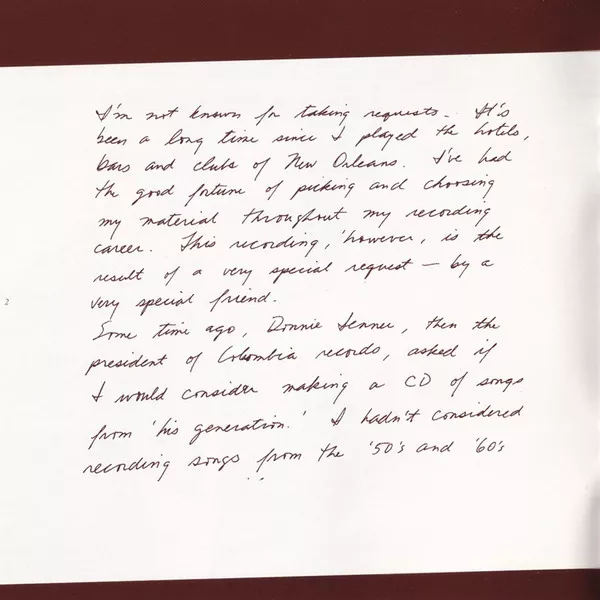 I'm not known for taking requests. It's
been a long time since I played the hotels,
bars and clubs of New Orleans. I've had
the good fortune of picking and choosing
my material throughout my recording
career. This recording, however, is the
result of a very special request — by a
very special friend.
Some time ago, Donnie Ienner, then the
president of Columbia records, asked if
I would consider making a CD of songs
from 'his generation.' I hadn't considered
recording songs from the '50's and '60's
2